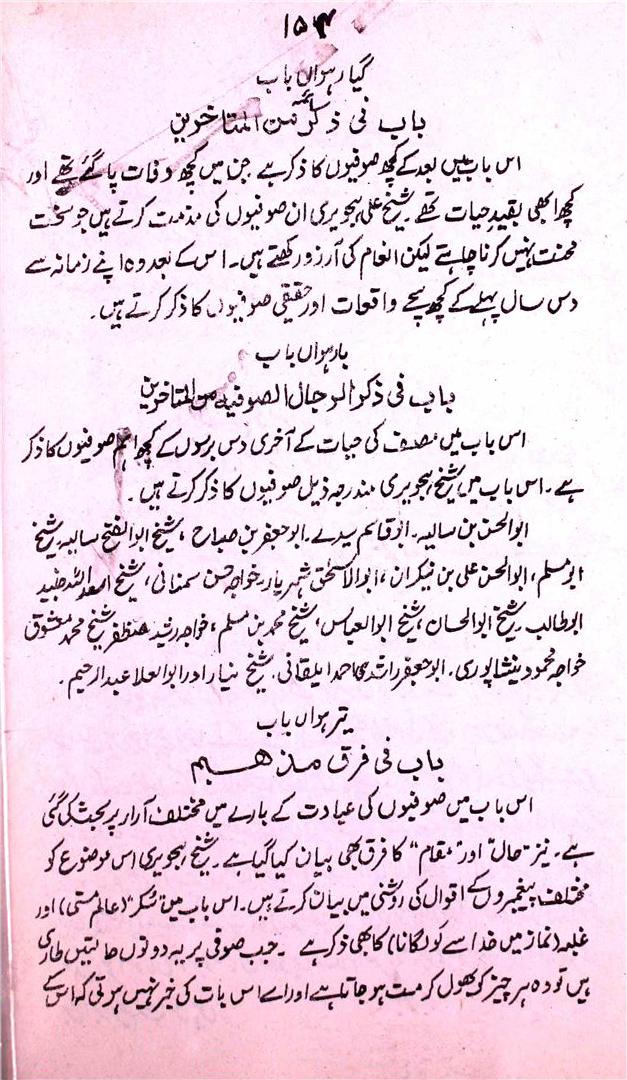 ۱۵۴
گیارہواں باب
باب فی ذکر ائمہ من المتاخرین
اس باب میں بعد کے کچھ صوفیوں کا ذکر ہے جن میں کچھ وفات پا گئے تھے اور
کچھ ابھی بقید حیات تھے۔ شیخ علی ہجویری ان صوفیوں کی مذمت کرتے ہیں جو سخت
محنت نہیں کرنا چاہتے لیکن انعام کی آرزو رکھتے ہیں۔ اس کے بعد وہ اپنے زمانہ سے
دس سال پہلے کے کچھ سچے واقعات اور حقیقی صوفیوں کا ذکر کرتے ہیں۔
بارہواں باب
باب فی ذکر الرجال الصوفیہ من المتاخرین
اس باب میں مصنف کی حیات کے آخری دس برسوں کے کچھ اہم صوفیوں کا ذکر
ہے۔ اس باب میں شیخ ہجویری مندرجہ ذیل صوفیوں کا ذکر کرتے ہیں۔
ابوالحسن بن سالبہ۔ ابو قاسم سیدے۔ ابو جعفر بن صباح، شیخ ابوالفتح سالبہ شیخ
ابو مسلم، ابوالحسن علی بن نیکران، ابوالاسحٰق شہریار۔ خواجہ حسن سمنانی، شیخ
ابو طالب۔ شیخ ابوالحسان، شیخ ابوالعباس، شیخ محمد بن مسلم، خواجہ رشید مظفر شیخ محمد معشوق
خواجہ محمود نیشاپوری۔ ابو جعفر احمد ایلقانی شیخ نیار اور ابوالعلا عبدالرحیم۔
تیرہواں باب
باب فی فرق مذہبہم
اس باب میں صوفیوں کی عبادت کے بارے میں مختلف آراء پر بحث کی گئی
ہے۔ نیز "حال" اور "مقام" کا فرق بھی بیان کیا گیا ہے۔ شیخ ہجویری اس موضوع کو
مختلف پیغمبروں کے اقوال کی روشنی میں بیان کرتے ہیں۔ اس باب میں "سُکر" (عالم مستی) اور
غلبہ (نماز میں خدا سے لَو لگانا) کا بھی ذکر ہے۔ جب صوفی پر یہ دونوں حالتیں طاری
ہیں تو وہ ہر چیز کو بھول کر مست ہو جاتا ہے اور اسے اس بات کی خبر نہیں ہوتی کہ اس کے